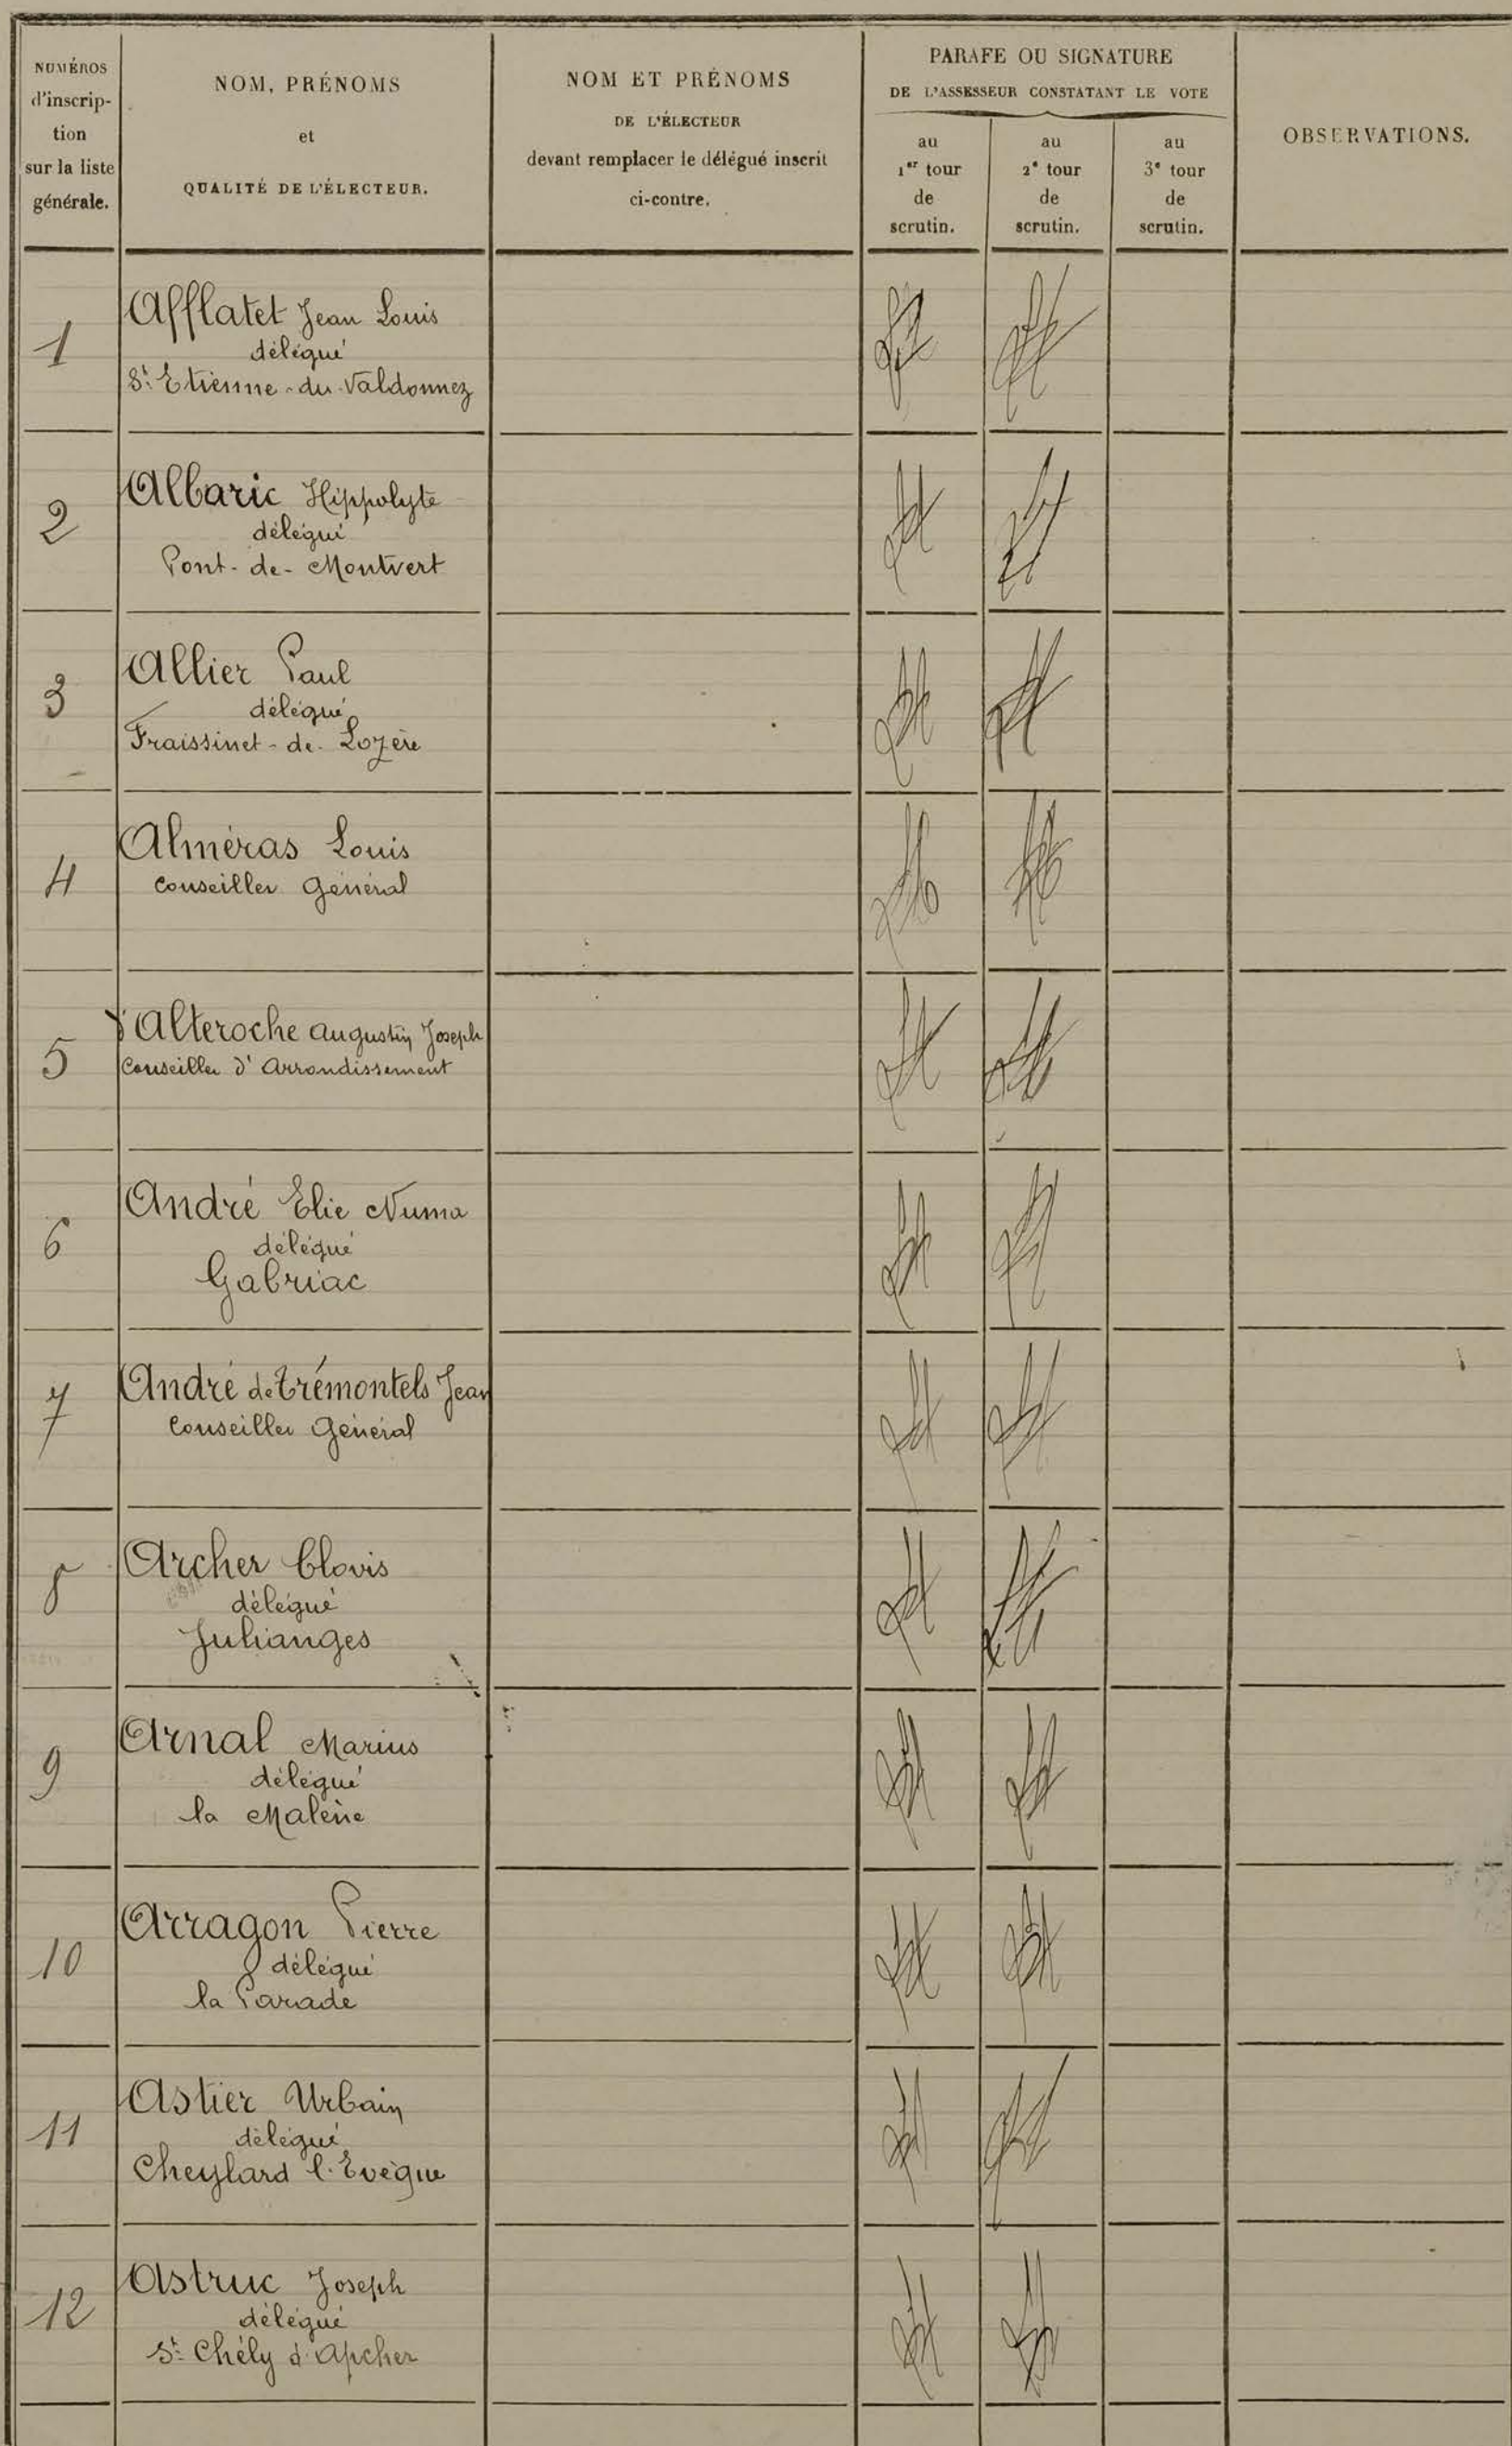 NUMÉROS
d'inscrip-
tion
sur la liste
générale.
NOM, PRÉNOMS
et
QUALITÉ DE L'ÉLECTEUR.
NOM ET PRÉNOMS
DE L'ÉLECTEUR
devant remplacer le délégué inscrit
ci-contre.
PARAFE OU SIGNATURE
DE L'ASSESSEUR CONSTATANT LE VOTE
au
1er tour
de
scrutin.
au
2e tour
de
scrutin.
au
3e tour
de
scrutin.
OBSERVATIONS.
1
Afflatet Jean Louis
délégué
St Etienne-du-Valdonnez
2
Albaric Hippolyte
délégué
Pont-de-Montvert
3
Allier Paul
délégué
Fraissinet-de-Lozère
4
Alméras Louis
Conseiller Général
5
d'Alteroche Augustin Joseph
Conseiller d'Arrondissement
6
André Elie Numa
délégué
Gabriac
7
André de Trémontels Jean
Conseiller Général
8
Archer Clovis
délégué
Julianges
9
Arnal Marius
délégué
la Malène
10
Arragon Pierre
délégué
la Parade
11
Astier Urbain
délégué
Cheylard l'Evèque
12
Astruc Joseph
délégué
St Chély d'Apcher